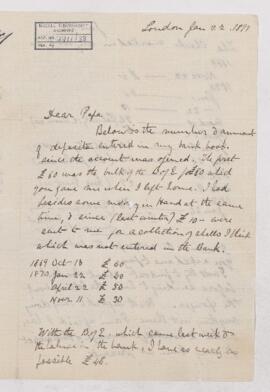 London Jan 22 1871
Dear Papa
Below is the number & amount
of deposits entered in my bank book
since the account was opened. The first
£60 was the bulk of the B of E / £80 which
you gave me when I left home. I had
besides some money in hand at the same
time, & since (last winter) £10 – were
sent to me for a collection of shells I think
which was not entered in the Bank.
1869 Oct 18 £ 60
1870 Jan 22 £ 20
April 22 £ 30
Nov 11 £ 30
With the B of E. which came last week &
the balance in the bank, I have as nearly as
possible £ 46.